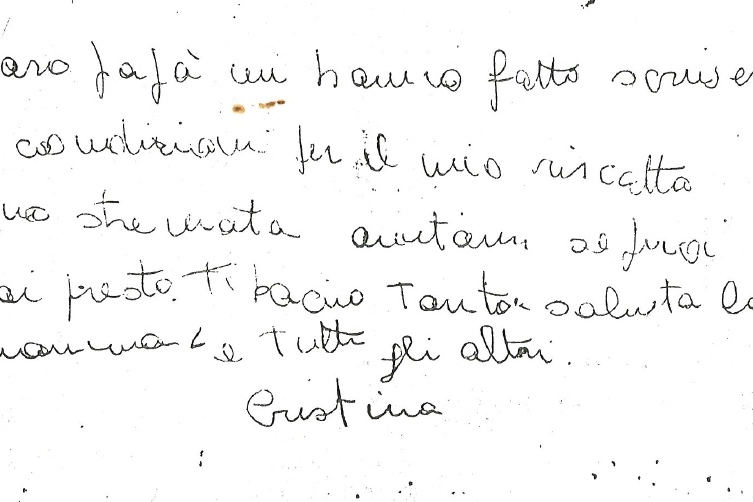 aro papà mi hanno fatto scrive
condizioni per il mio riscatto
no stremata aiutami se puoi
ai presto. Ti bacio Tanto saluta la
mamma e Tutti gli altri.
Cristina